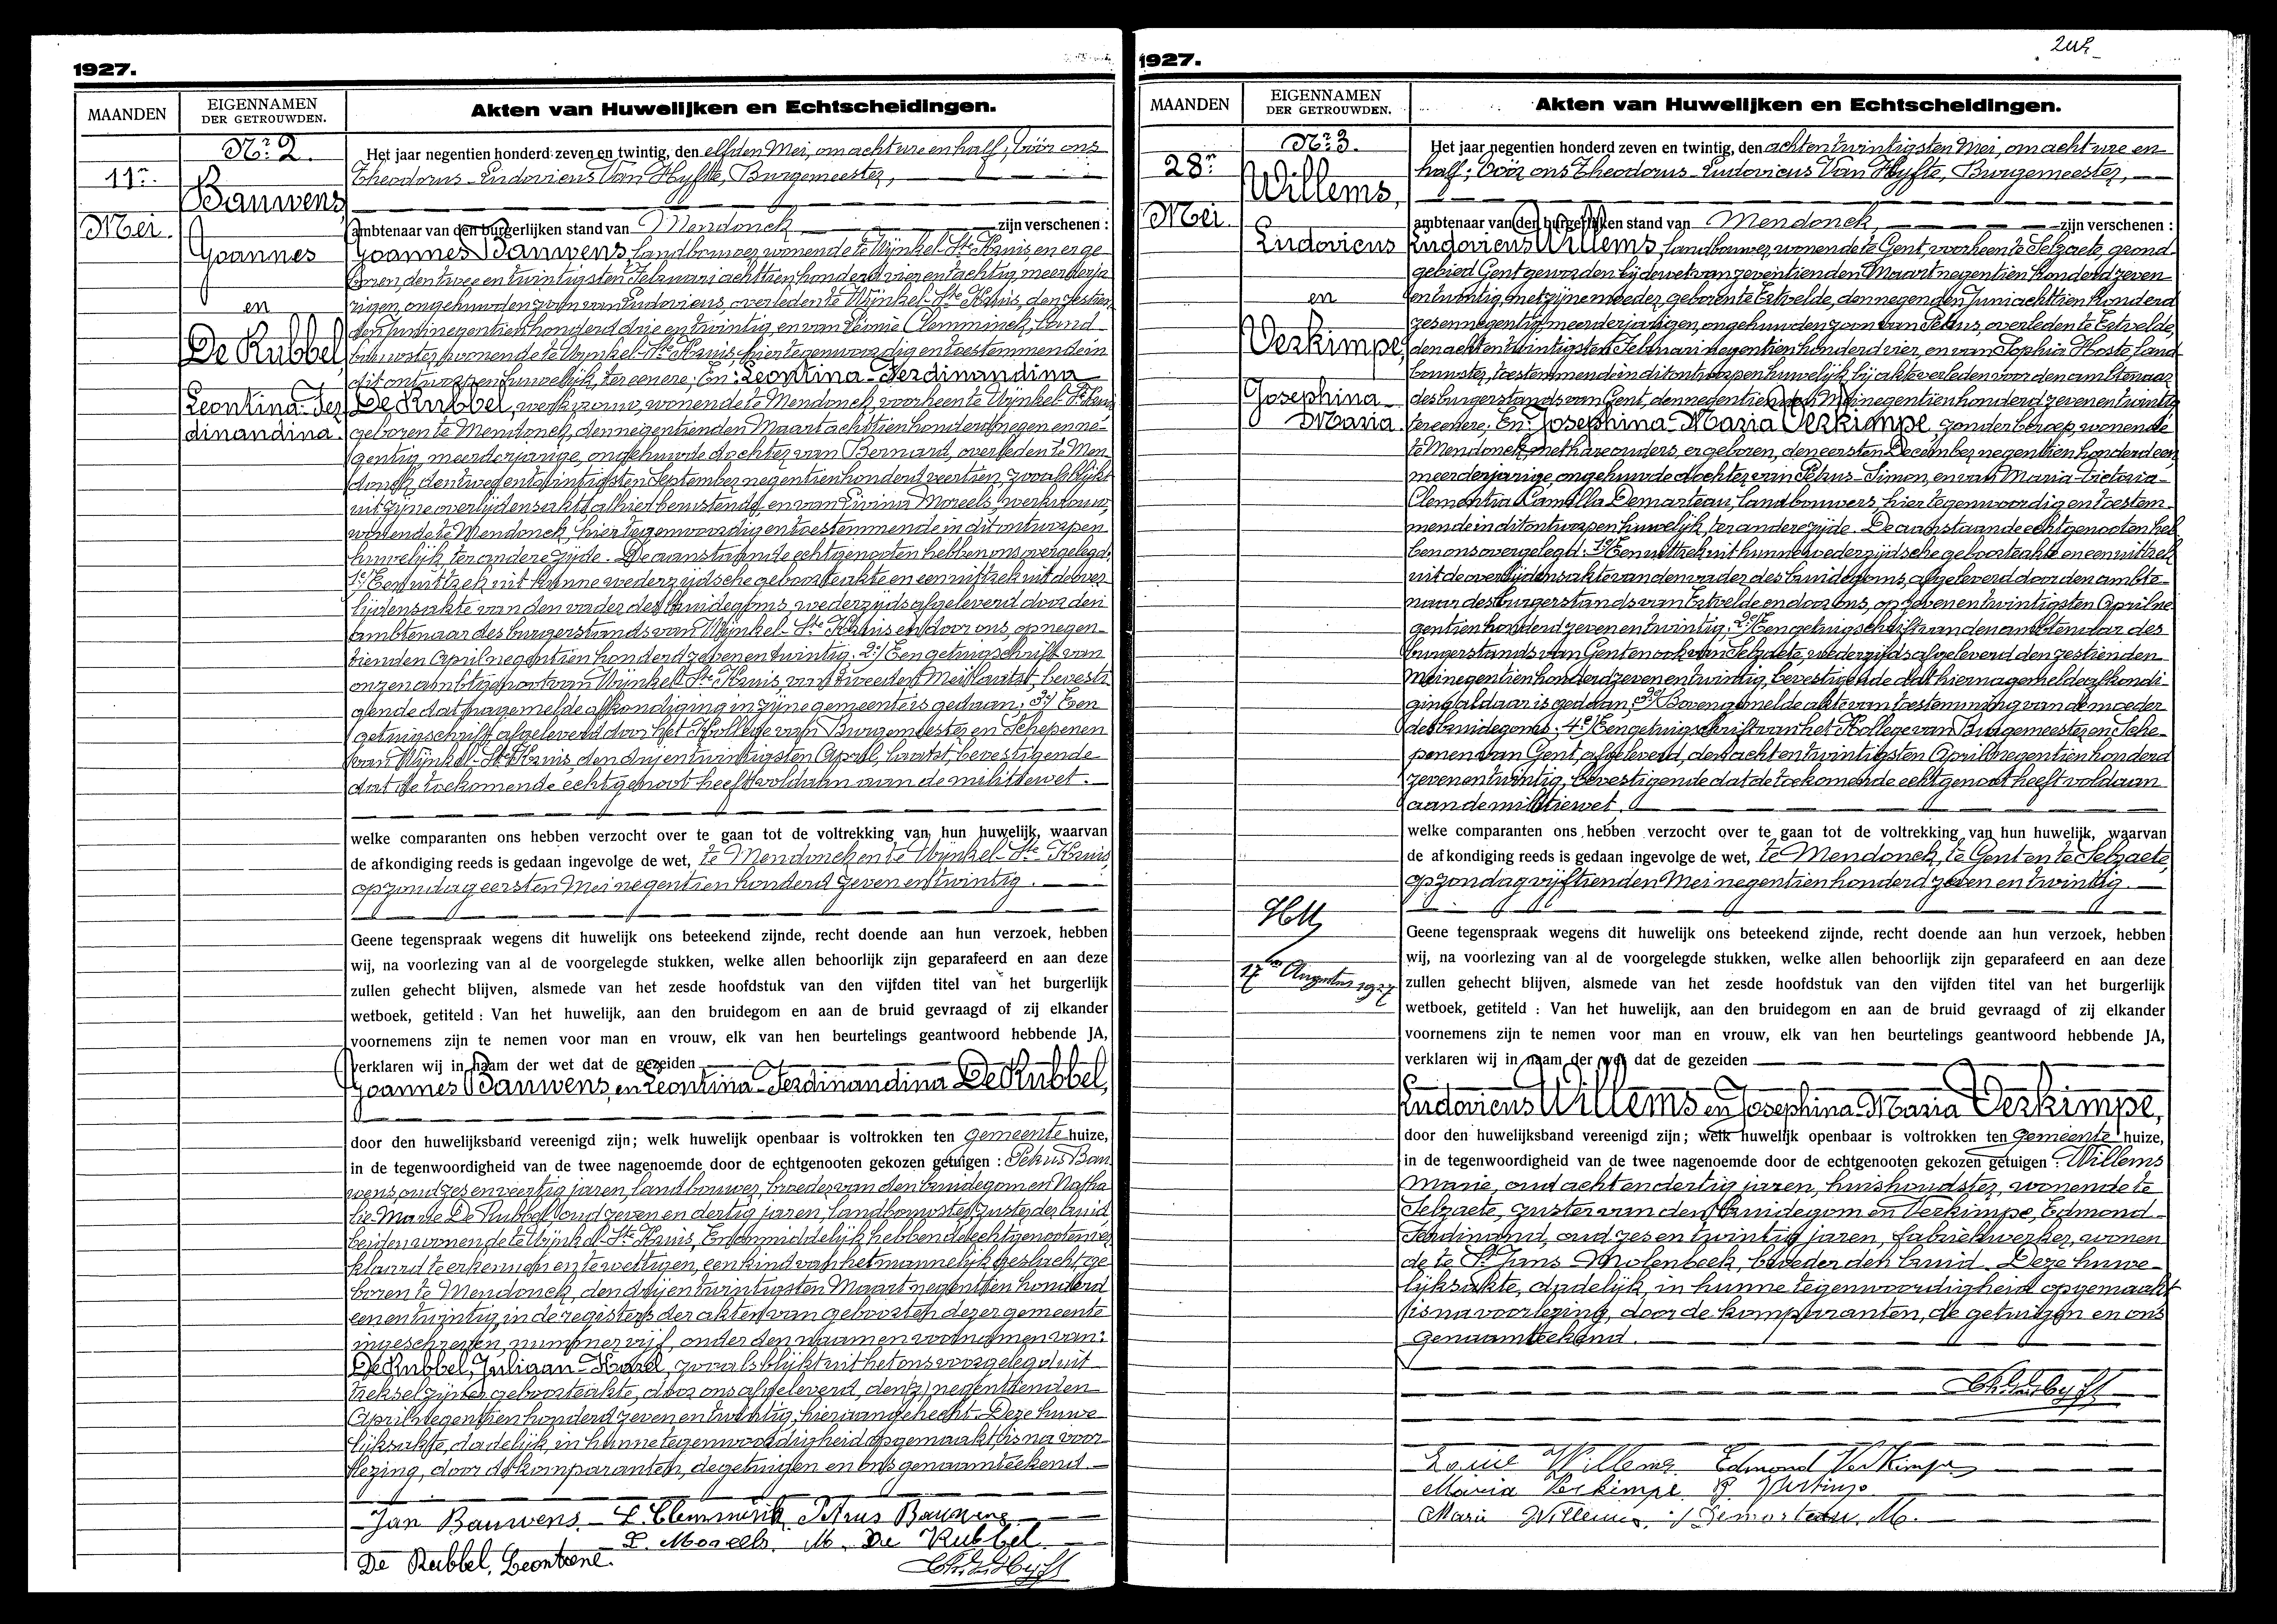 1927.
MAANDEN
EIGENNAMEN
DER GETROUWDEN.
Akten van Huwelijken en Echtscheidingen.
Nr. 2.
11n.
Mei.
Bauwens,
Joannes
en
De Rubbel,
Leontina-Fer
dinandina.
Het jaar negentien honderd zeven en twintig, den elfden Mei, om acht ure en half, vóór ons
Theodorus-Ludovicus Van Hyfte, Burgemeester,
ambtenaar van den burgerlijken stand van Mendonck zijn verschenen :
Joannes Bauwens, landbouwer, wonende te Wijnkel-Ste Kruis, en er ge
boren, den twee en twintigsten Februari achttien honderd vier en tachtig, meerderja
rigen, ongehuwden zoon van Ludovicus, overleden te Wijnkel-Ste Kruis, den zestien
den Juni negentien honderd drie en twintig, en van Léonie Clemminck, land
bouwster, wonende te Wijnkel-Ste Kruis, hier tegenwoordig en toestemmende in
dit ontworpen huwelijk, ter eenere; En: Leontina-Ferdinandina
De Rubbel, werkvrouw, wonende te Mendonck, voorheen te Wijnkel-Ste Kruis
geboren te Mendonck, den negentienden Maart achttien honderd negen en ne-
gentig, meerderjarige, ongehuwde dochter van Bernard, overleden te Men
donck, den twee en twintigsten September negentien honderd veertien, zooals blijkt
uit zijne overlijdensakte alhier berustende, en van Livina Moreels, werkvrouw,
wonende te Mendonck, hier tegenwoordig en toestemmende in dit ontworpen
huwelijk, ter andere zijde. De aanstaande echtgenooten hebben ons overgelegd:
1e/ Een uittrek uit hunne wederzijdsche geboorteakte en een uittrek uit de over
lijdensakte van den vader des bruidegoms, wederzijds afgeleverd door den
ambtenaar des burgerstands van Wijnkel-Ste Kruis en door ons, op negen-
tienden April negentien honderd zeven en twintig. 2e/ Een getuigschrift van
onzen ambtgenoot van Wijnkel-Ste Kruis, van tweeden Mei laatst, bevesti
gende dat nagemelde afkondiging in zijne gemeente is gedaan; 3e/ Een
getuigschrift afgeleverd door het Kollege van Burgemeester en Schepenen
van Wijnkel-Ste Kruis, den drij en twintigsten April, laatst, bevestigende
dat de toekomende echtgenoot heeft voldaan aan de militiewet.
welke comparanten ons hebben verzocht over te gaan tot de voltrekking van hun huwelijk, waarvan
de afkondiging reeds is gedaan ingevolge de wet, te Mendonck en te Wijnkel-Ste Kruis,
op zondag eersten Mei negentien honderd zeven en twintig.
Geene tegenspraak wegens dit huwelijk ons beteekend zijnde, recht doende aan hun verzoek, hebben
wij, na voorlezing van al de voorgelegde stukken, welke allen behoorlijk zijn geparafeerd en aan deze
zullen gehecht blijven, alsmede van het zesde hoofdstuk van den vijfden titel van het burgerlijk
wetboek, getiteld : Van het huwelijk, aan den bruidegom en aan de bruid gevraagd of zij elkander
voornemens zijn te nemen voor man en vrouw, elk van hen beurtelings geantwoord hebbende JA,
verklaren wij in naam der wet dat de gezeiden
Joannes Bauwens, en Leontina-Ferdinandina De Rubbel,
door den huwelijksband vereenigd zijn; welk huwelijk openbaar is voltrokken ten gemeente huize,
in de tegenwoordigheid van de twee nagenoemde door de echtgenooten gekozen getuigen : Petrus Bau
wens, oud zes en veertig jaren, landbouwer, broeder van den bruidegom en Natha
lie-Marie De Rubbel, oud zeven en dertig jaren, landbouwster, zuster der bruid
beiden wonende te Wijnkel-Ste Kruis, En onmiddelijk hebben de echtgenooten ver
klaard te erkennen en te wettigen, een kind van het mannelijk geslacht, ge
boren te Mendonck, den drij en twintigsten Maart negentien honderd
een en twintig, in de registers der akten van geboorten dezer gemeente
ingeschreven, nummer vijf, onder den naam en voornamen van:
De Rubbel, Juliaan-Karel, zooals blijkt uit het ons voorgelegd uit
treksel zijner geboorteakte, door ons afgeleverd, den negentienden
April negentien honderd zeven en twintig, hieraangehecht. Deze huwe
lijksakte, dadelijk in hunne tegenwoordigheid opgemaakt is na voor
lezing, door de komparanten, de getuigen en ons genaamteekend.
Jan Bauwens. L. Clemminck Petrus Bauwens
L. Moreels. M. De Rubbel.
De Rubbel, Leontine.
1927.
MAANDEN
EIGENNAMEN
DER GETROUWDEN.
Akten van Huwelijken en Echtscheidingen.
Nr. 3.
28n.
Mei.
Willems,
Ludovicus
en
Verkimpe,
Josephina-
Maria.
17en Augustus 1927
Het jaar negentien honderd zeven en twintig, den acht en twintigsten Mei, om acht ure en
half; vóór ons Theodorus-Ludovicus Van Hyfte, Burgemeester,
ambtenaar van den burgerlijken stand van Mendonck, zijn verschenen :
Ludovicus Willems, landbouwer, wonende te Gent, voorheen te Selzaete, grond-
gebied Gent geworden bij de wet van zeventienden Maart negentien honderd zeven
en twintig, met zijne moeder, geboren te Ertvelde, den negenden Juni achttien honderd
zes en negentig, meerderjarigen, ongehuwden zoon van Petrus, overleden te Ertvelde,
den acht en twintigsten Februari negentien honderd vier, en van Sophia Hoste, land-
bouwster, toestemmende in dit ontworpen huwelijk bij akte verleden voor den ambtenaar
des burgerstands van Gent, den negentienden Mei negentien honderd zeven en twintig
ter eenere; En: Josephina-Maria Verkimpe, zonder beroep, wonende
te Mendonck met hare ouders, er geboren, den eersten December negentien honderd een,
meerderjarige, ongehuwde dochter van Petrus-Simon, en van Maria-Victoria-
Clementia-Camilla Demarteau, landbouwers, hier tegenwoordig en toestem-
mende in dit ontworpen huwelijk, ter andere zijde. De aanstaande echtgenooten heb
ben ons overgelegd: 1e/ Een uittrek uit hunne wederzijdsche geboorteakte en een uittrek
uit de overlijdensakte van den vader des bruidegoms, afgeleverd door den ambte-
naar des burgerstands van Ertvelde en door ons, op zeven en twintigsten April ne
gentien honderd zeven en twintig; 2e/ Een getuigschrift van den ambtenaar des
burgerstands van Gent en ook van Selzaete, wederzijds afgeleverd den zestienden
Mei negentien honderd zeven en twintig, bevestigende dat hiernagemelde afkondi-
ging aldaar is gedaan; 3e/ Bovengemelde akte van toestemming van de moeder
des bruidegoms; 4e/ Een getuigschrift van het Kollege van Burgemeester en Sche-
penen van Gent, afgeleverd, den acht en twintigsten April negentien honderd
zeven en twintig, bevestigende dat de toekomende echtgenoot heeft voldaan
aan de militiewet.
welke comparanten ons hebben verzocht over te gaan tot de voltrekking van hun huwelijk, waarvan
de afkondiging reeds is gedaan ingevolge de wet, te Mendonck, te Gent en te Selzaete,
op zondag vijftienden Mei negentien honderd zeven en twintig.
Geene tegenspraak wegens dit huwelijk ons beteekend zijnde, recht doende aan hun verzoek, hebben
wij, na voorlezing van al de voorgelegde stukken, welke allen behoorlijk zijn geparafeerd en aan deze
zullen gehecht blijven, alsmede van het zesde hoofdstuk van den vijfden titel van het burgerlijk
wetboek, getiteld : Van het huwelijk, aan den bruidegom en aan de bruid gevraagd of zij elkander
voornemens zijn te nemen voor man en vrouw, elk van hen beurtelings geantwoord hebbende JA,
verklaren wij in naam der wet dat de gezeiden
Ludovicus Willems en Josephina Maria Verkimpe,
door den huwelijksband vereenigd zijn; welk huwelijk openbaar is voltrokken ten Gemeente huize,
in de tegenwoordigheid van de twee nagenoemde door de echtgenooten gekozen getuigen : Willems
Marie, oud acht en dertig jaren, huishoudster, wonende te
Selzaete, zuster van den bruidegom en Verkimpe, Edmond
Ferdinand, oud zes en twintig jaren, fabriekwerker, wonen
de te St Jans Molenbeek, broeder der bruid. Deze huwe-
lijksakte, dadelijk, in hunne tegenwoordigheid opgemaakt
is na voorlezing, door de komparanten, de getuigen en ons
genaamteekend.
Louis Willems. Edmond Verkimpe
Maria Verkimpe
Marie Willems. Demarteau. M.